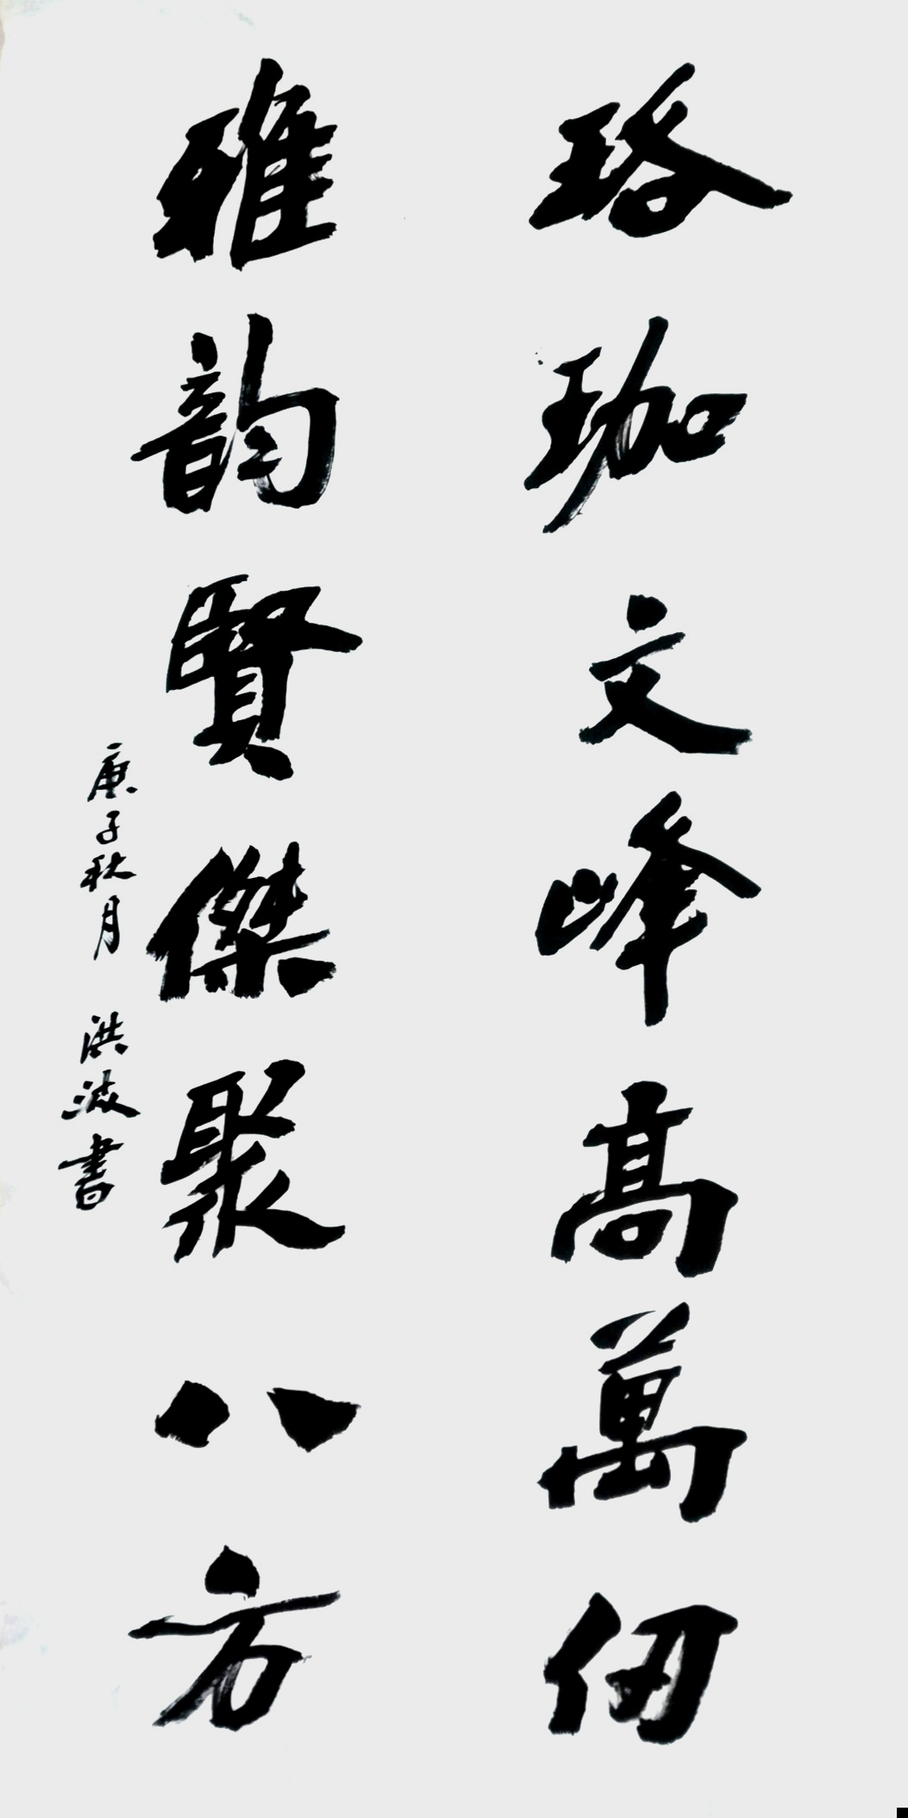 珞珈文峰高萬仞
雅韵賢傑聚八方
庚子秋月 洪波書